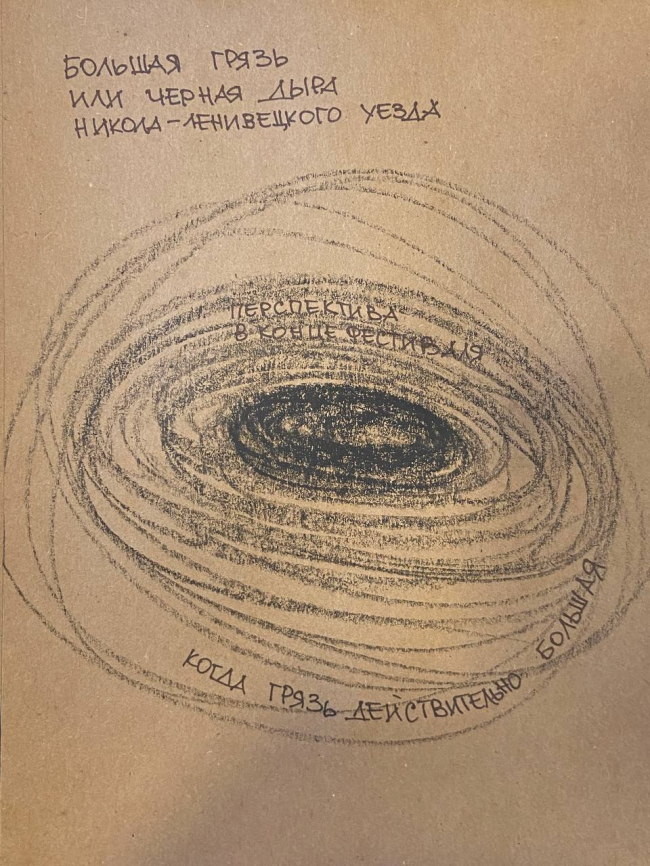 БОЛЬШАЯ ГРЯЗЬ
ИЛИ ЧЕРНАЯ ДЫРА
НИКОЛА-ЛЕНИВЕЦКОГО УЕЗДА
ПЕРСПЕКТИВА
В КОНЦЕ ФЕСТИВАЛЯ
КОГДА ГРЯЗЬ ДЕЙСТВИТЕЛЬНО БОЛЬШАЯ